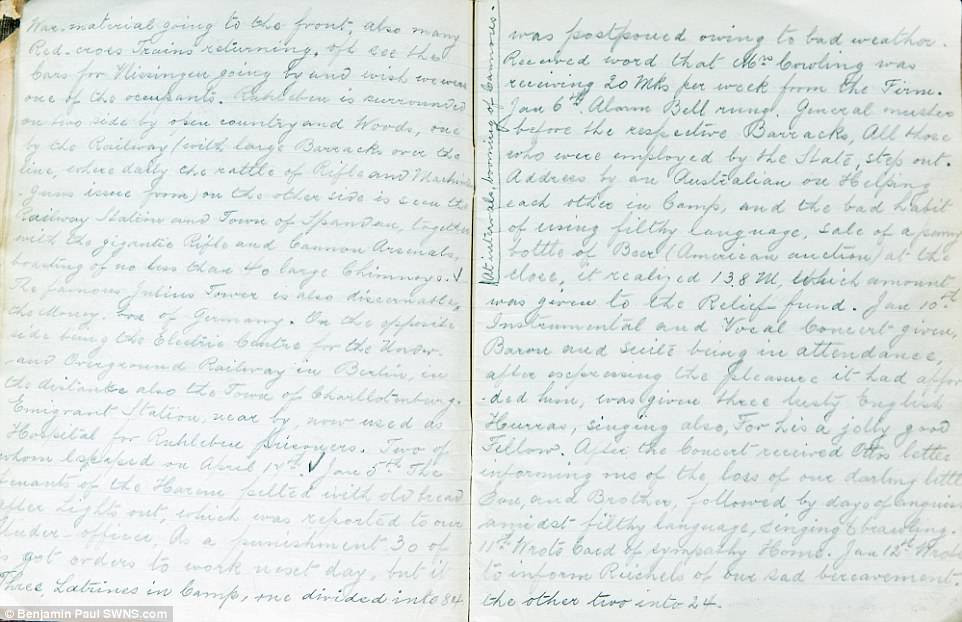 War-material going to the front, also many
Red-cross Trains returning. oft see the
Cars for Vlissingen going by and wish we were
one of the occupants. Ruhleben is surrounded
on two side by open country and Woods, one
by the Railway (with large Barracks over the
line, where daily the rattle of Rifle and Machine
-Guns issue from) on the other side is seen the
Railway Station and Town of Spandau, together
with the gigantic Rifle and Cannon Arsenals,
boasting of no less than 40 large Chimneys. ✓
The famous Julius Tower is also discernable,
the Money box of Germany. On the opposite
side being the Electric Centre for the Under-
-and Overground Railway in Berlin, in
the distance also the Town of Charllotenburg.
Emigrant Station, near by, now used as
Hospital for Ruhleben prisoners. Two of
whom escaped on April ✓ Jan 5th The
tenants of the Harem pelted with old bread
after Lights out, which was reported to our
Under-officer. As a punishment 30 of
us got orders to work next day, but it
Three Latrines in Camp, one divided into 84
At intervals, booming of Cannons.
was postponed owing to bad weather.
Received word that Mrs Cowling was
receiving 20 Mks per week from the Firm.
Jan 6th. Alarm Bell rung. General muster
before the respective Barracks, All those
who were employed by the State, step out.
Address by an Australian on Helping
each other in Camp, and the bad habit
of using filthy language, Sale of a penny
bottle of Beer (American auction) at the
close, it realized 138 M, which amount
was given to the Relief fund. Jan 10th
Instrumental and Vocal Concert given,
Baron and suite being in attendance,
after expressing the pleasure it had affor-
-ded him, was given three lusty English
Hurras, singing also, For he's a jolly good
Fellow. After the Concert received letter
informing me of the loss of our darling little
Son, and Brother, followed by days of anguish
amidst filthy language, singing & brawling.
11th Wrote Card of sympathy Home. Jan 12th Wrote
to inform Reichels of our sad bereavement.
the other two into 24.
© Benjamin Paul SWNS.com